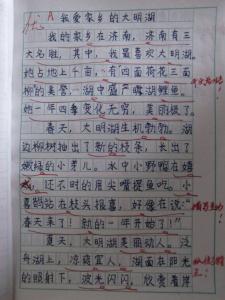 优A 我爱家乡的大明湖
我的家乡在济南,济南有三
大名胜,其中,我最喜欢大明湖。
她占地上千亩,有四面荷花三面
柳的美誉,湖中盛产露湖鲤鱼。
她一年四季变化无穷,美丽极了。
春天,大明湖生机勃勃。湖
边柳树抽出了新的枝条,长出了
嫩绿的小芽儿。水中小野鸭在嬉
戏,还不时的用尖嘴捉鱼吃。小
喜鹊站在枝头报喜,好像在说:“
春天来了!新的一年开始了!”
夏天,大明湖美丽动人。泛
舟湖上,凉爽宜人。湖面在阳光
的照射下,波光闪闪。欣赏着岸